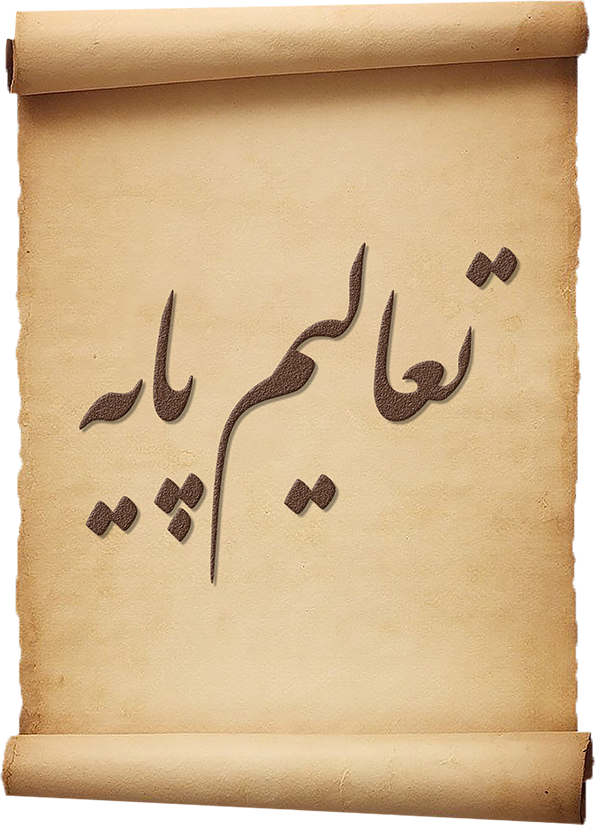 تعالیم پایه